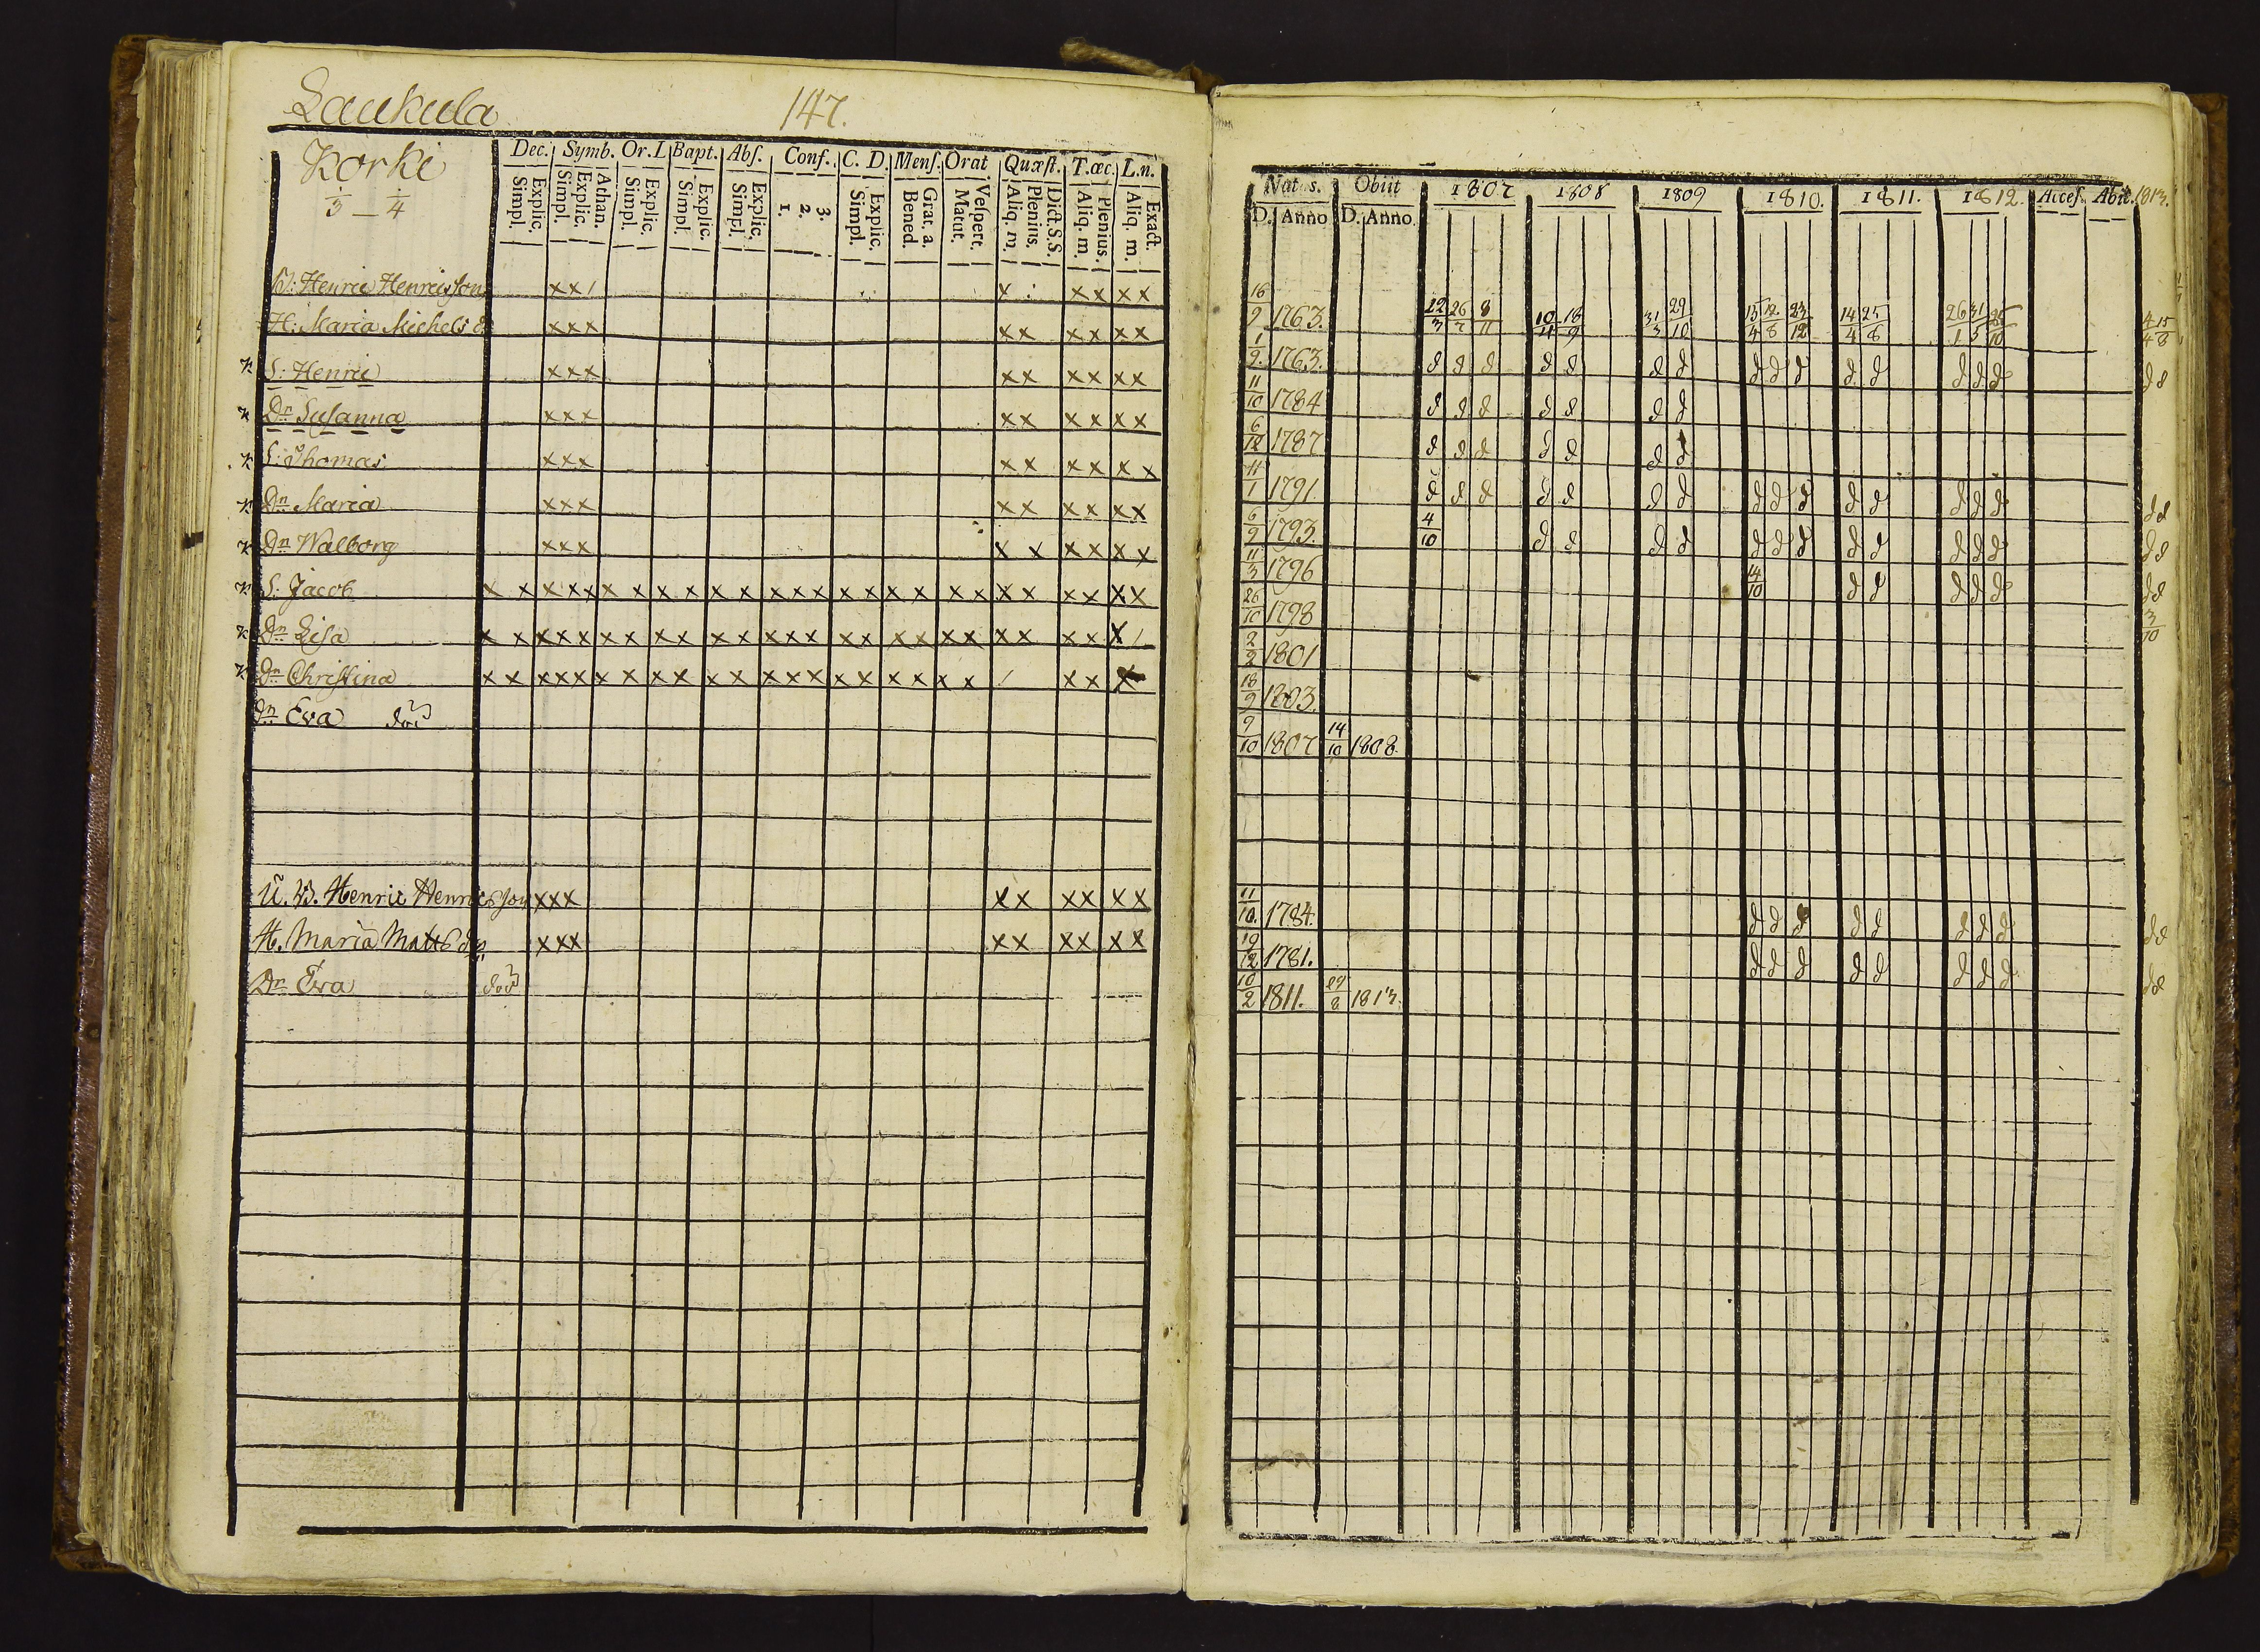 Laukula 147.
Korki
1/3 — 1/4
Dec. Symb. Or. L Bapt. Abſ. Conf. C. D. Menſ. Orat Quæſt. T. œc. L. n.
Explic. Simpl. Athan. Explic. Simpl. Explic. Simpl. Explic. Simpl. Explic. Simpl. 3. 2. 1. Explic. Simpl. Grat. a. Bened. Veſpert. Matut. Dict. S.S. Plenius. Aliq. m. Plenius. Aliq. m. Exact. Aliq. m.
B: Henric Henricsson xx/ x xx xx
H: Maria Michels d xxx xx xx xx
S: Henric xxx xx xx xx
Dr Susanna xxx xx xx xx
S: Thomas xxx xx xx xx
Dn Maria xxx xx xx xx
Dn Walborg xxx x x xx xx
S: Jacob x x xxx x x x x x x x x x x x x x x x x x x x x x x
Dn Lisa x x xxx xx xx xx xxx xx xx xx xx xx x/
Dn Christina x x xxx x x xx xx xxx xx xx x x / xx x
Dn Eva död
U. B. Henric Henricsson xxx xx xx xx
H. Maria Matts dr. xxx xx xx xx
Dr Eva död
Natus. Obiit 1807 1808 1809 1810. 1811. 1812. Acceſ. Abiit. 1813.
D. Anno D. Anno
16/9 1763. 22/3 26/7 8/11 10/4 18/9 31/3 29/10 15/4 12/8 23/12 14/4 25/8 26/1 31/5 26/10 4/4 15/8
1/9. 1763. d d d d d d d d d d d d d d d d d
11/10 1784 d d d d d d d
6/12 1787 d d d d d d d
11/1 1791 d d d d d d d d d d d d d d d d d
6/9 1793. 4/10 d d d d d d d d d d d d d d
11/3 1796 14/10 d d d d d d d
26/10 1798 3/10
2/2 1801
18/9 1803.
9/10 1807 14/10 1808.
11/10. 1784. d d d d d d d d d d
19/12 1781. d d d d d d d d d d
10/2 1811. 29/8 1813.